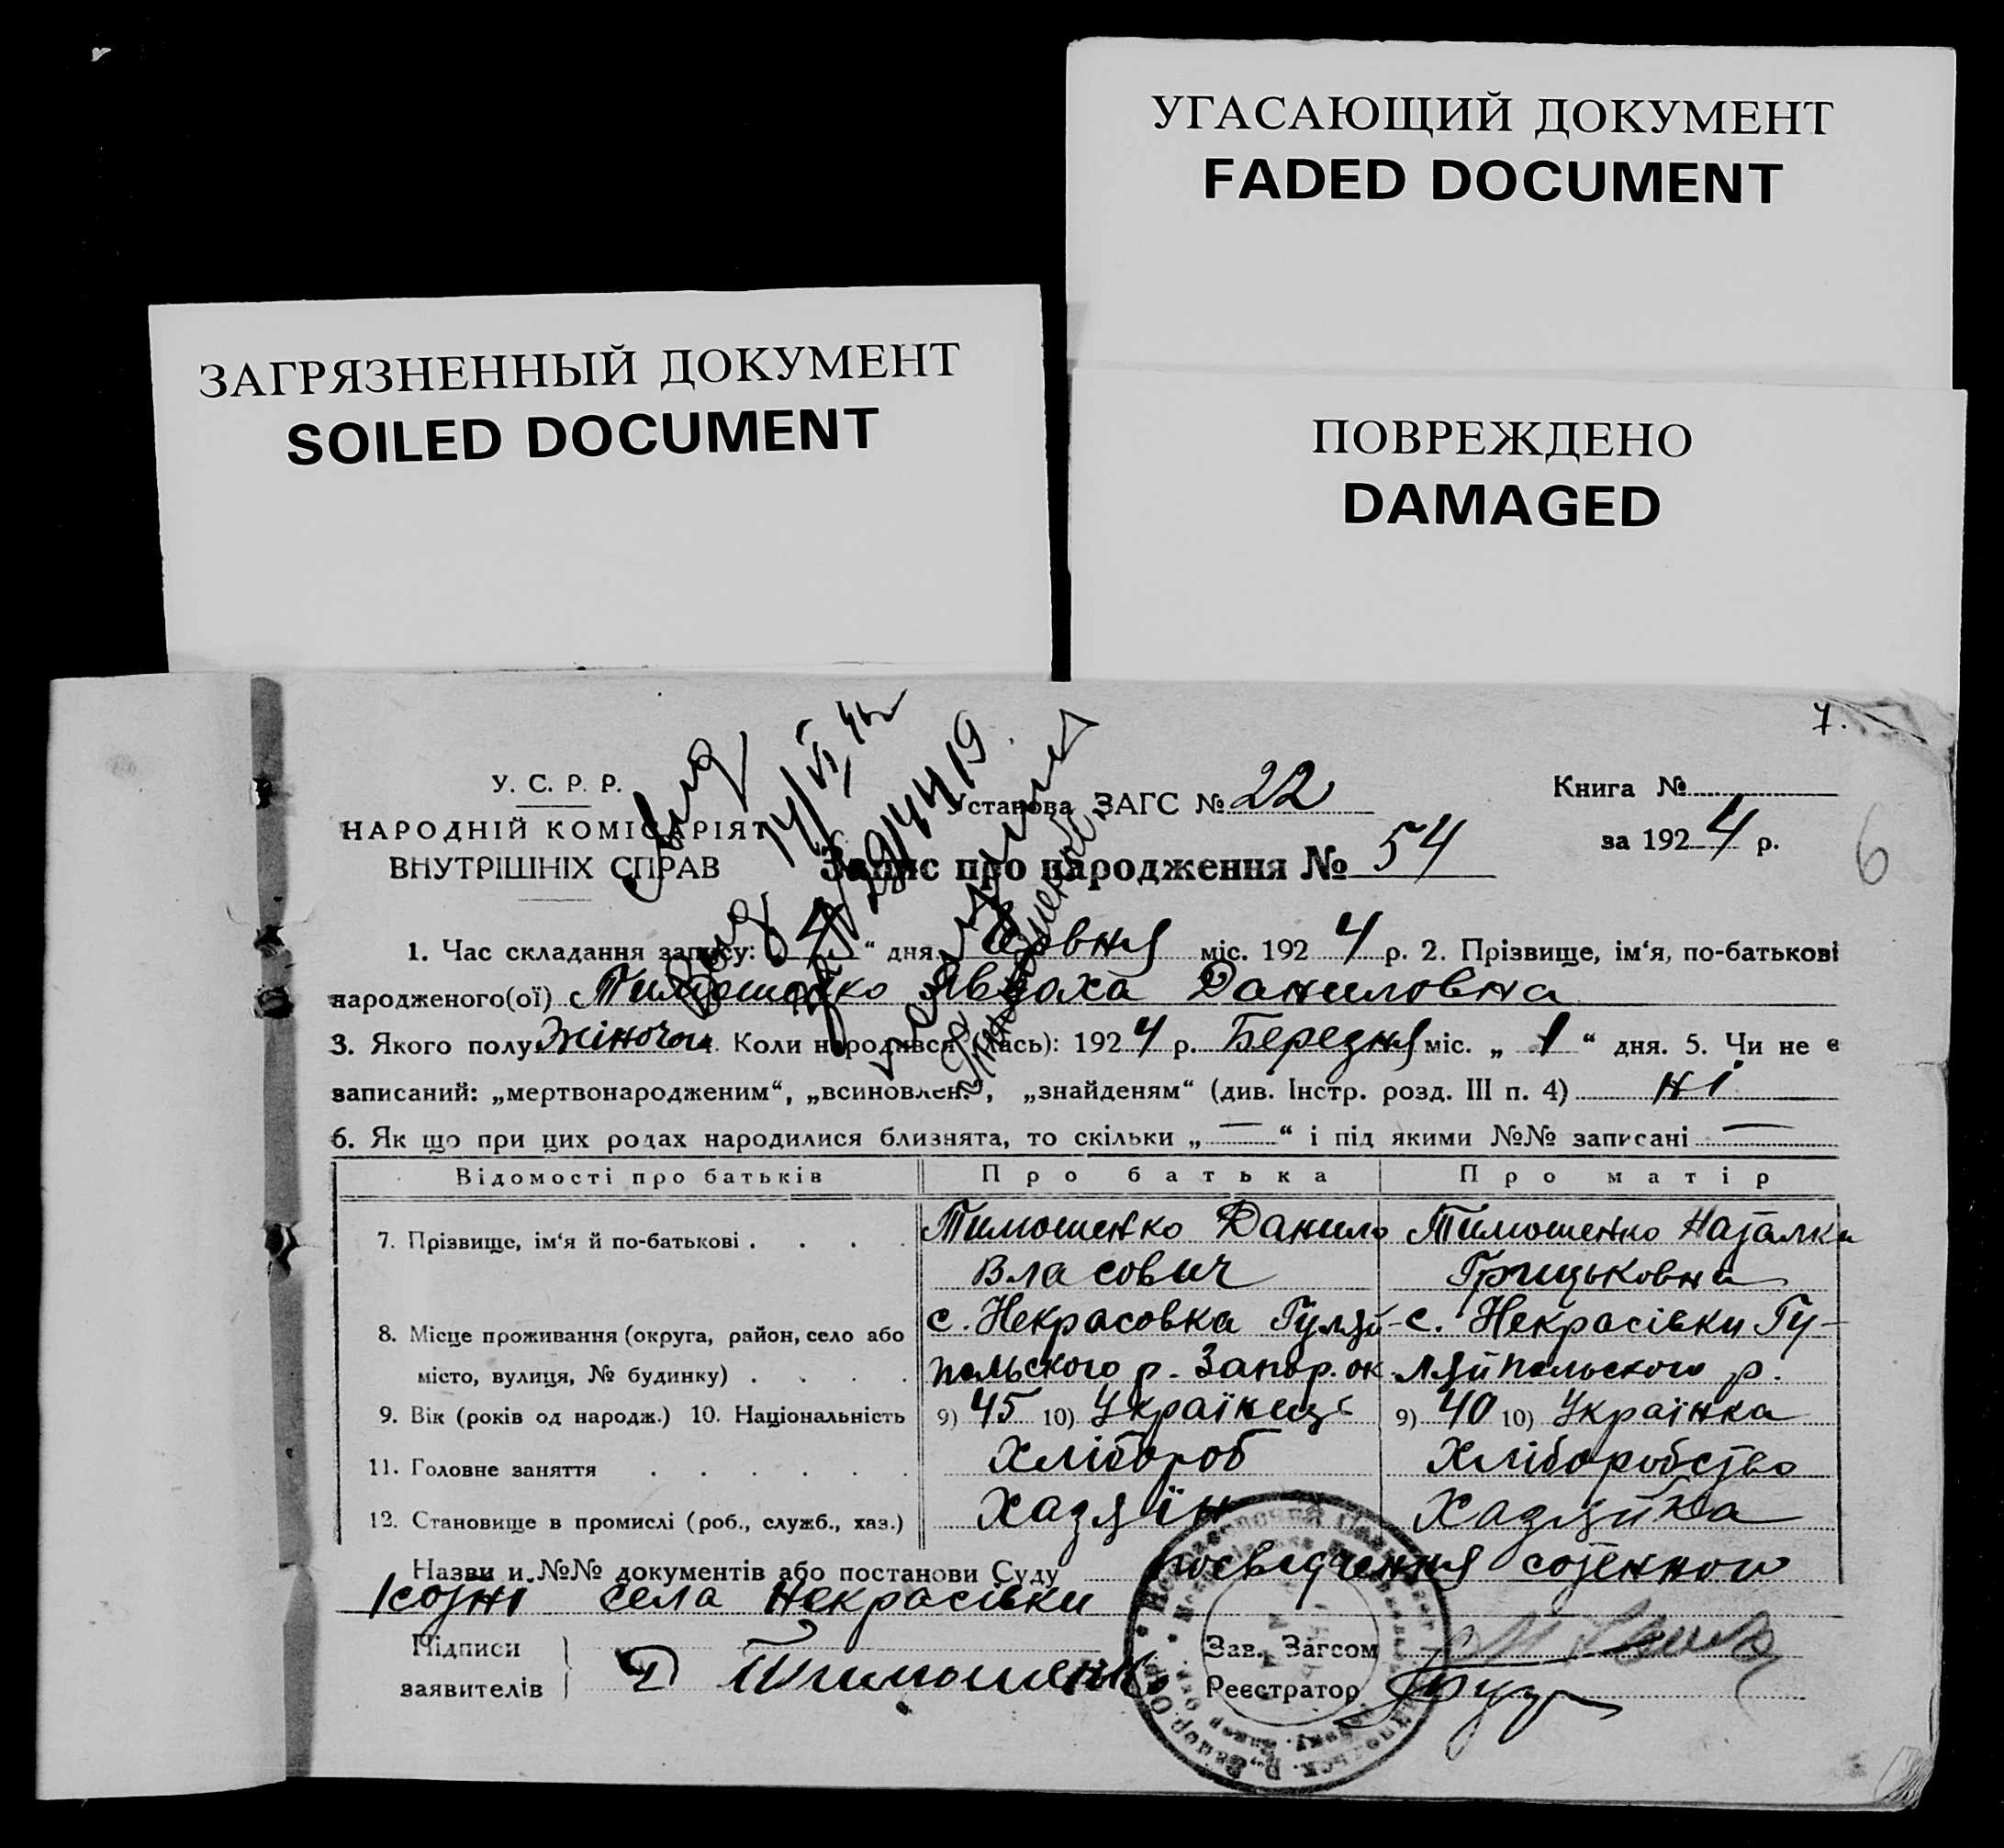 УГАСАЮЩИЙ ДОКУМЕНТ
FADED DOCUMENT
ЗАГРЯЗНЕННЫЙ ДОКУМЕНТ
SOILED DOCUMENT
ПОВРЕЖДЕНО
DAMAGED
7.
У. С. Р. Р.
НАРОДНІЙ КОМІСАРІЯТ
ВНУТРІШНІХ СПРАВ
Установа ЗАГС № 22
Книга №
за 1924 р.
6
Запис про народження № 54
14/VI
1. Час складання запису: „ 4 “ дня міс. 1924 р. 2. Прізвище, ім‘я, по-батькові
народженого(ої) Тимошенко Явдоха Даниловна
3. Якого полу Жіночои 4. Коли народився (лась): 1924 р. Березня міс. „ 1 “ дня. 5. Чи не є
записаний: „мертвонародженим“, „всиновлен.“, „знайденям“ (див. Інстр. розд. III п. 4) ні
6. Як що при цих родах народилися близнята, то скільки „ — “ і під якими №№ записані —
Відомості про батьків Про батька Про матір
7. Прізвище, ім‘я й по-батькові . . . . Тимошенко Данило Тимошенко Наталка
Власович Грицьковна
8. Місце проживання (округа, район, село або с. Некрасовка Гуляй- с. Некрасівки Гу-
місто, вулиця, № будинку) . . . . польського р. Запор. ок. ляйпольского р.
9. Вік (років од народж.) 10. Національність 9) 45 10) Українець 9) 40 10) Українка
11. Головне заняття . . . . . . Хлібороб Хліборобство
12. Становище в промислі (роб., служб., хаз.) Хазяїн Хазяйка
Назви и №№ документів або постанови Суду посведчення сотенного
сотні села Некрасівки
Підписи
заявителів
Д Тимошенко
Зав. Загсом
Реєстратор